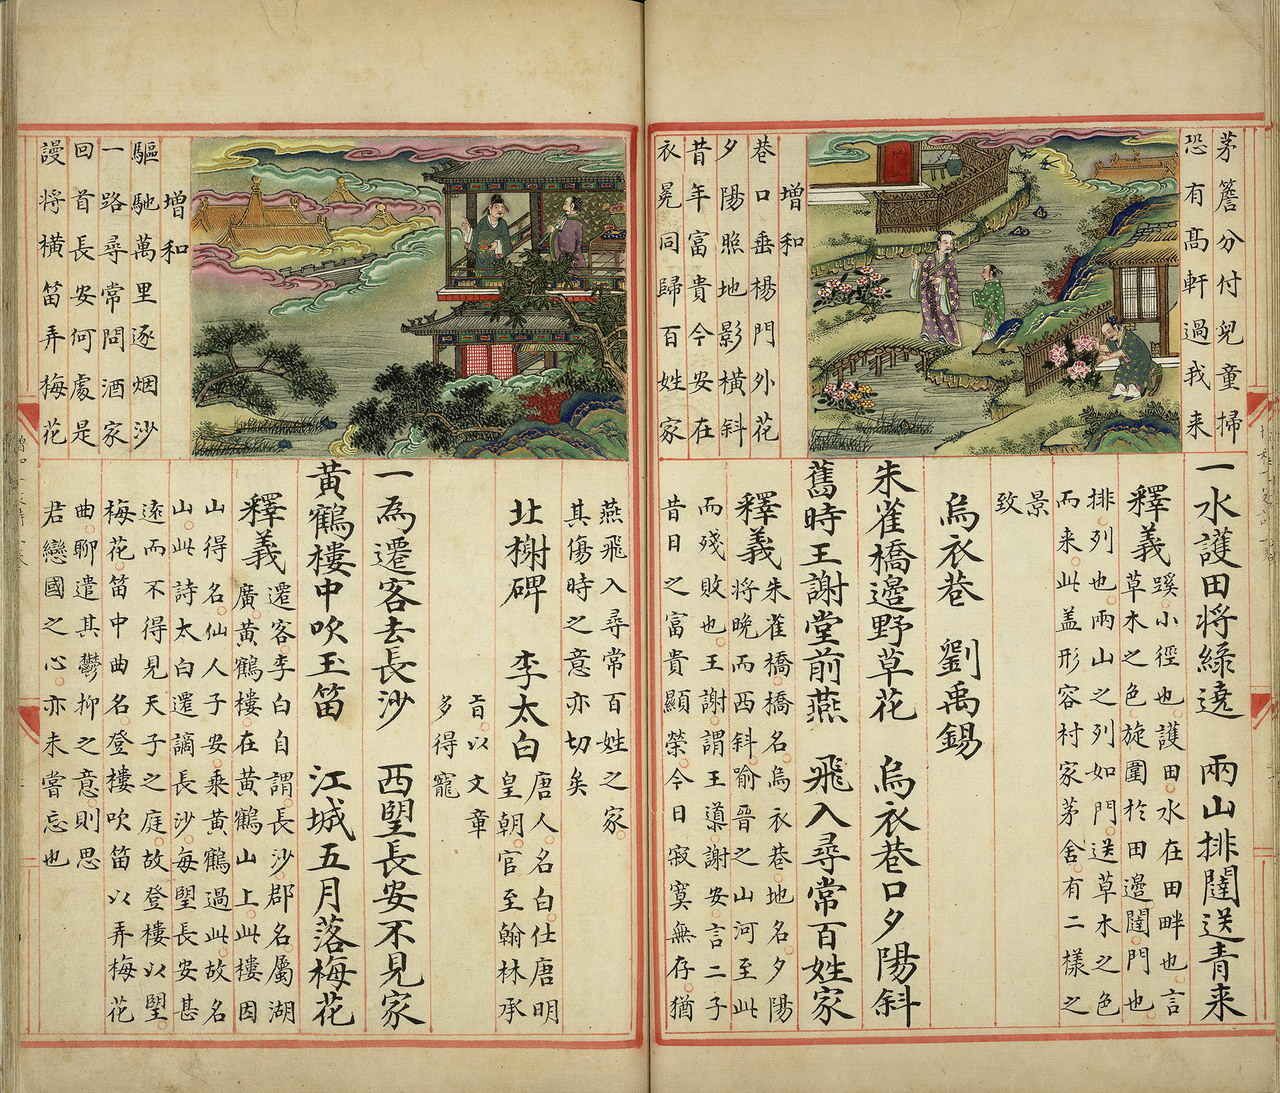 茅簷分付兒童掃
恐有高軒過我来
增和
巷口垂楊門外花
夕陽照地影橫斜
昔年富貴今安在
衣冕同歸百姓家
一水護田将綠遶 兩山排闥送青来
釋義
蹊。小徑也。護田。水在田畔也。言
草木之色。旋圍於田邊。闥。門也。
排。列也。兩山之列如門。送草木之色
而来。此盖形容村家茅舍。有二樣之
景
致
烏衣巷 劉禹錫
朱雀橋邊野草花 烏衣巷口夕陽斜
舊時王謝堂前燕 飛入尋常百姓家
釋義
朱雀橋。橋名。烏衣巷。地名。夕陽
将晚而西斜。喻晉之山河至此
而殘敗也。王謝。謂王導。謝安。言二子
昔日之富貴顯榮。今日寂寞無存。猶
增和
驅馳萬里逐烟沙
一路尋常問酒家
回首長安何處是
謾将橫笛弄梅花
燕飛入尋常百姓之家。
其傷時之意亦切矣
北榭碑 李太白
唐人。名白。仕唐明
皇朝。官至翰林承
旨。以文章
多得寵
一為遷客去長沙 西望長安不見家
黃鶴樓中吹玉笛 江城五月落梅花
釋義
遷客。李白自謂。長沙。郡名。屬湖
廣。黃鶴樓。在黃鶴山上。此樓因
山得名。仙人子安。乘黃鶴過此。故名
山。此詩太白遷謫長沙。每望長安甚
遠。而不得見天子之庭。故登樓以望。
梅花。笛中曲名。登樓吹笛以弄梅花
曲。聊遣其鬱抑之意。則思
君戀國之心。亦未嘗忘也